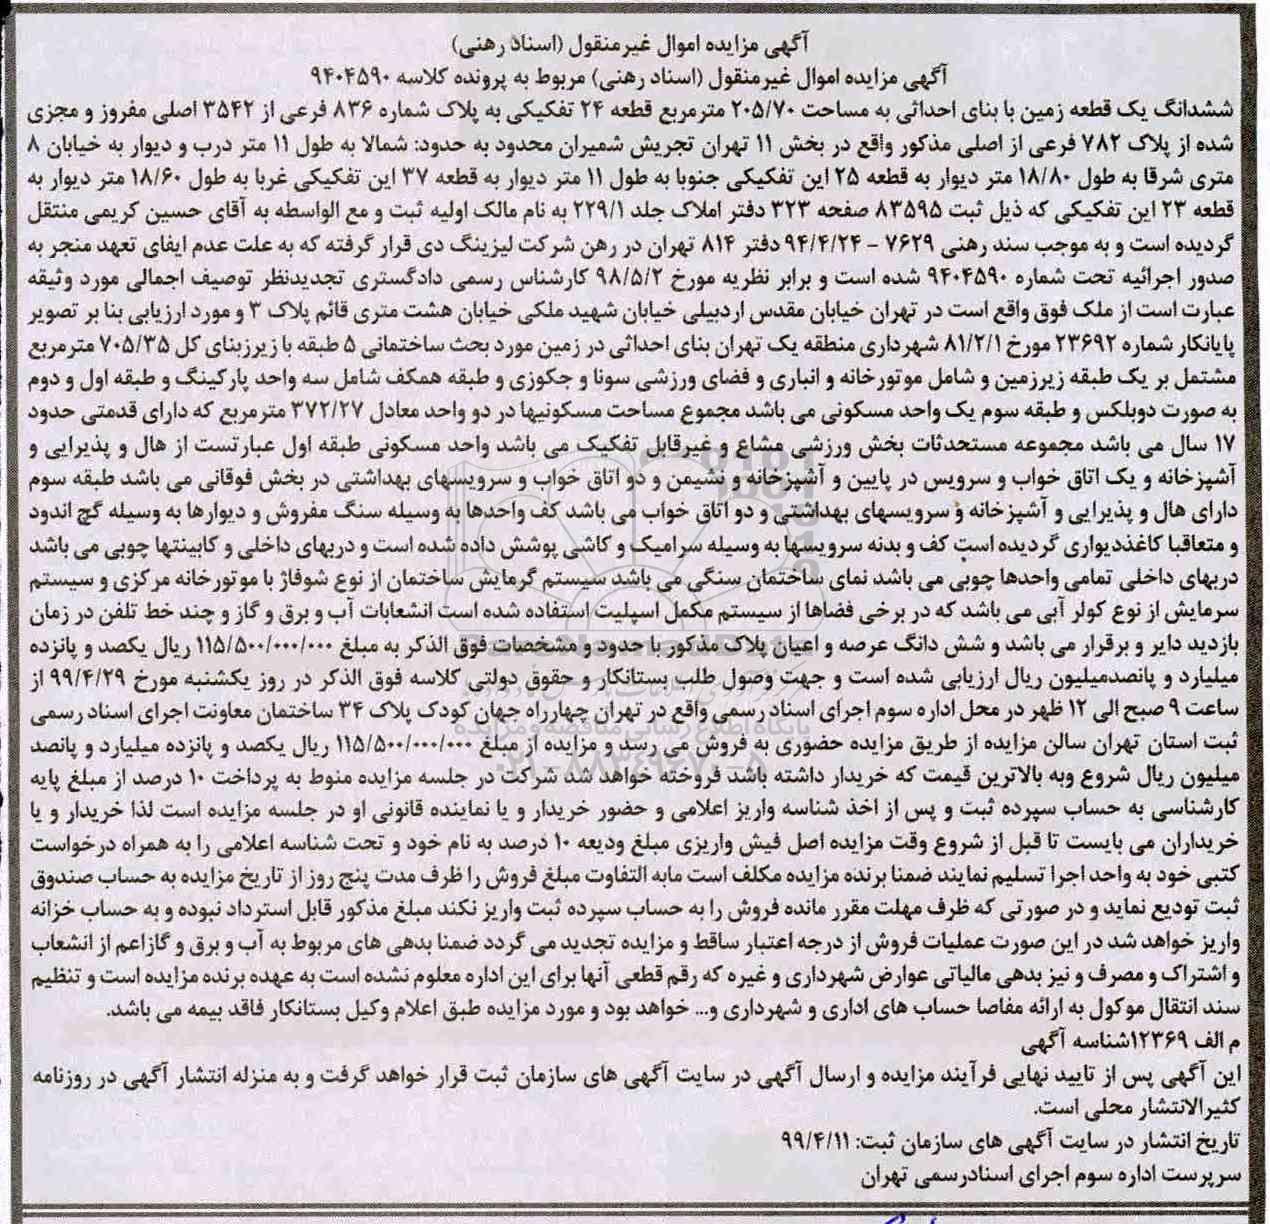 آگهی مزایده اموال غیرمنقول (اسناد رهنی)
آگهی مزایده اموال غیرمنقول (اسناد رهنی) مربوط به پرونده کلاسه ۹۴۰۴۵۹۰
ششدانگ یک قطعه زمین با بنای احداثی به مساحت ۲۰۵/۷۰ مترمربع قطعه ۲۴ تفکیکی به پلاک شماره ۸۳۶ فرعی از ۳۵۴۲ اصلی مفروز و مجزی
شده از پلاک ۷۸۲ فرعی از اصلی مذکور واقع در بخش ۱۱ تهران تجریش شمیران محدود به حدود: شمالا به طول ۱۱ متر درب و دیوار به خیابان ۸
متری شرقا به طول ۱۸/۸۰ متر دیوار به قطعه ۲۵ این تفکیکی جنوبا به طول ۱۱ متر دیوار به قطعه ۳۷ این تفکیکی غربا به طول ۱۸/۶۰ متر دیوار به
قطعه ۲۳ این تفکیکی که ذیل ثبت ۸۳۵۹۵ صفحه ۳۲۳ دفتر املاک جلد ۲۲۹/۱ به نام مالک اولیه ثبت و مع الواسطه به آقای حسین کریمی منتقل
گردیده است و به موجب سند رهنی ۷۶۲۹ - ۹۴/۴/۲۴ دفتر ۸۱۴ تهران در رهن شرکت لیزینگ دی قرار گرفته که به علت عدم ایفای تعهد منجر به
صدور اجرائیه تحت شماره ۹۴۰۴۵۹۰ شده است و برابر نظریه مورخ ۹۸/۵/۲ کارشناس رسمی دادگستری تجدیدنظر توصیف اجمالی مورد وثیقه
عبارت است از ملک فوق واقع است در تهران خیابان مقدس اردبیلی خیابان شهید ملکی خیابان هشت متری قائم پلاک ۳ و مورد ارزیابی بنا بر تصویر
پایانکار شماره ۲۳۶۹۲ مورخ ۸۱/۲/۱ شهرداری منطقه یک تهران بنای احداثی در زمین مورد بحث ساختمانی ۵ طبقه با زیرزبنای کل ۷۰۵/۳۵ مترمربع
مشتمل بر یک طبقه زیرزمین و شامل موتورخانه و انباری و فضای ورزشی سونا و جکوزی و طبقه همکف شامل سه واحد پارکینگ و طبقه اول و دوم
به صورت دوبلکس و طبقه سوم یک واحد مسکونی می باشد مجموع مساحت مسکونیها در دو واحد معادل ۳۷۲/۲۷ مترمربع که دارای قدمتی حدود
۱۷ سال می باشد مجموعه مستحدثات بخش ورزشی مشاع و غیرقابل تفکیک می باشد واحد مسکونی طبقه اول عبارتست از هال و پذیرایی و
آشپزخانه و یک اتاق خواب و سرویس در پایین و آشپزخانه و نشیمن و دو اتاق خواب و سرویسهای بهداشتی در بخش فوقانی می باشد طبقه سوم
دارای هال و پذیرایی و آشپزخانه و سرویسهای بهداشتی و دو اتاق خواب می باشد کف واحدها به وسیله سنگ مفروش و دیوارها به وسیله گچ اندود
و متعاقبا کاغذدیواری گردیده است کف و بدنه سرویسها به وسیله سرامیک و کاشی پوشش داده شده است و دربهای داخلی و کابینتها چوبی می باشد
دربهای داخلی تمامی واحدها چوبی می باشد نمای ساختمان سنگی می باشد سیستم گرمایش ساختمان از نوع شوفاژ با موتورخانه مرکزی و سیستم
سرمایش از نوع کولر آبی می باشد که در برخی فضاها از سیستم مکمل اسپلیت استفاده شده است انشعابات آب و برق و گاز و چند خط تلفن در زمان
بازدید دایر و برقرار می باشد و شش دانگ عرصه و اعیان پلاک مذکور با حدود و مشخصات فوق الذکر به مبلغ ۱۱۵/۵۰۰/۰۰۰/۰۰۰ ریال یکصد و پانزده
میلیارد و پانصدمیلیون ریال ارزیابی شده است و جهت وصول طلب بستانکار و حقوق دولتی کلاسه فوق الذکر در روز یکشنبه مورخ ۹۹/۴/۲۹ از
ساعت ۹ صبح الی ۱۲ ظهر در محل اداره سوم اجرای اسناد رسمی واقع در تهران چهارراه جهان کودک پلاک ۳۴ ساختمان معاونت اجرای اسناد رسمی
ثبت استان تهران سالن مزایده از طریق مزایده حضوری به فروش می رسد و مزایده از مبلغ ۱۱۵/۵۰۰/۰۰۰/۰۰۰ ریال یکصد و پانزده میلیارد و پانصد
میلیون ریال شروع وبه بالاترین قیمت که خریدار داشته باشد فروخته خواهد شد شرکت در جلسه مزایده منوط به پرداخت ۱۰ درصد از مبلغ پایه
کارشناسی به حساب سپرده ثبت و پس از اخذ شناسه واریز اعلامی و حضور خریدار و یا نماینده قانونی او در جلسه مزایده است لذا خریدار و یا
خریداران می بایست تا قبل از شروع وقت مزایده اصل فیش واریزی مبلغ ودیعه ۱۰ درصد به نام خود و تحت شناسه اعلامی را به همراه درخواست
کتبی خود به واحد اجرا تسلیم نمایند ضمنا برنده مزایده مکلف است مابه التفاوت مبلغ فروش را ظرف مدت پنج روز از تاریخ مزایده به حساب صندوق
ثبت تودیع نماید و در صورتی که ظرف مهلت مقرر مانده فروش را به حساب سپرده ثبت واریز نکند مبلغ مذکور قابل استرداد نبوده و به حساب خزانه
واریز خواهد شد در این صورت عملیات فروش از درجه اعتبار ساقط و مزایده تجدید می گردد ضمنا بدهی های مربوط به آب و برق و گازاعم از انشعاب
و اشتراک و مصرف و نیز بدهی مالیاتی عوارض شهرداری و غیره که رقم قطعی آنها برای این اداره معلوم نشده است به عهده برنده مزایده است و تنظیم
سند انتقال موکول به ارائه مفاصا حساب های اداری و شهرداری و... خواهد بود و مورد مزایده طبق اعلام وکیل بستانکار فاقد بیمه می باشد.
م الف ۱۲۳۶۹شناسه آگهی
این آگهی پس از تایید نهایی فرآیند مزایده و ارسال آگهی در سایت آگهی های سازمان ثبت قرار خواهد گرفت و به منزله انتشار آگهی در روزنامه
کثیرالانتشار محلی است.
تاریخ انتشار در سایت آگهی های سازمان ثبت: ۹۹/۴/۱۱
سرپرست اداره سوم اجرای اسنادرسمی تهران
پایگاه اطلاع رسانی مناقصه و مزایده
۰۲۱-۸۸۳۴۹۶۷۰-۵